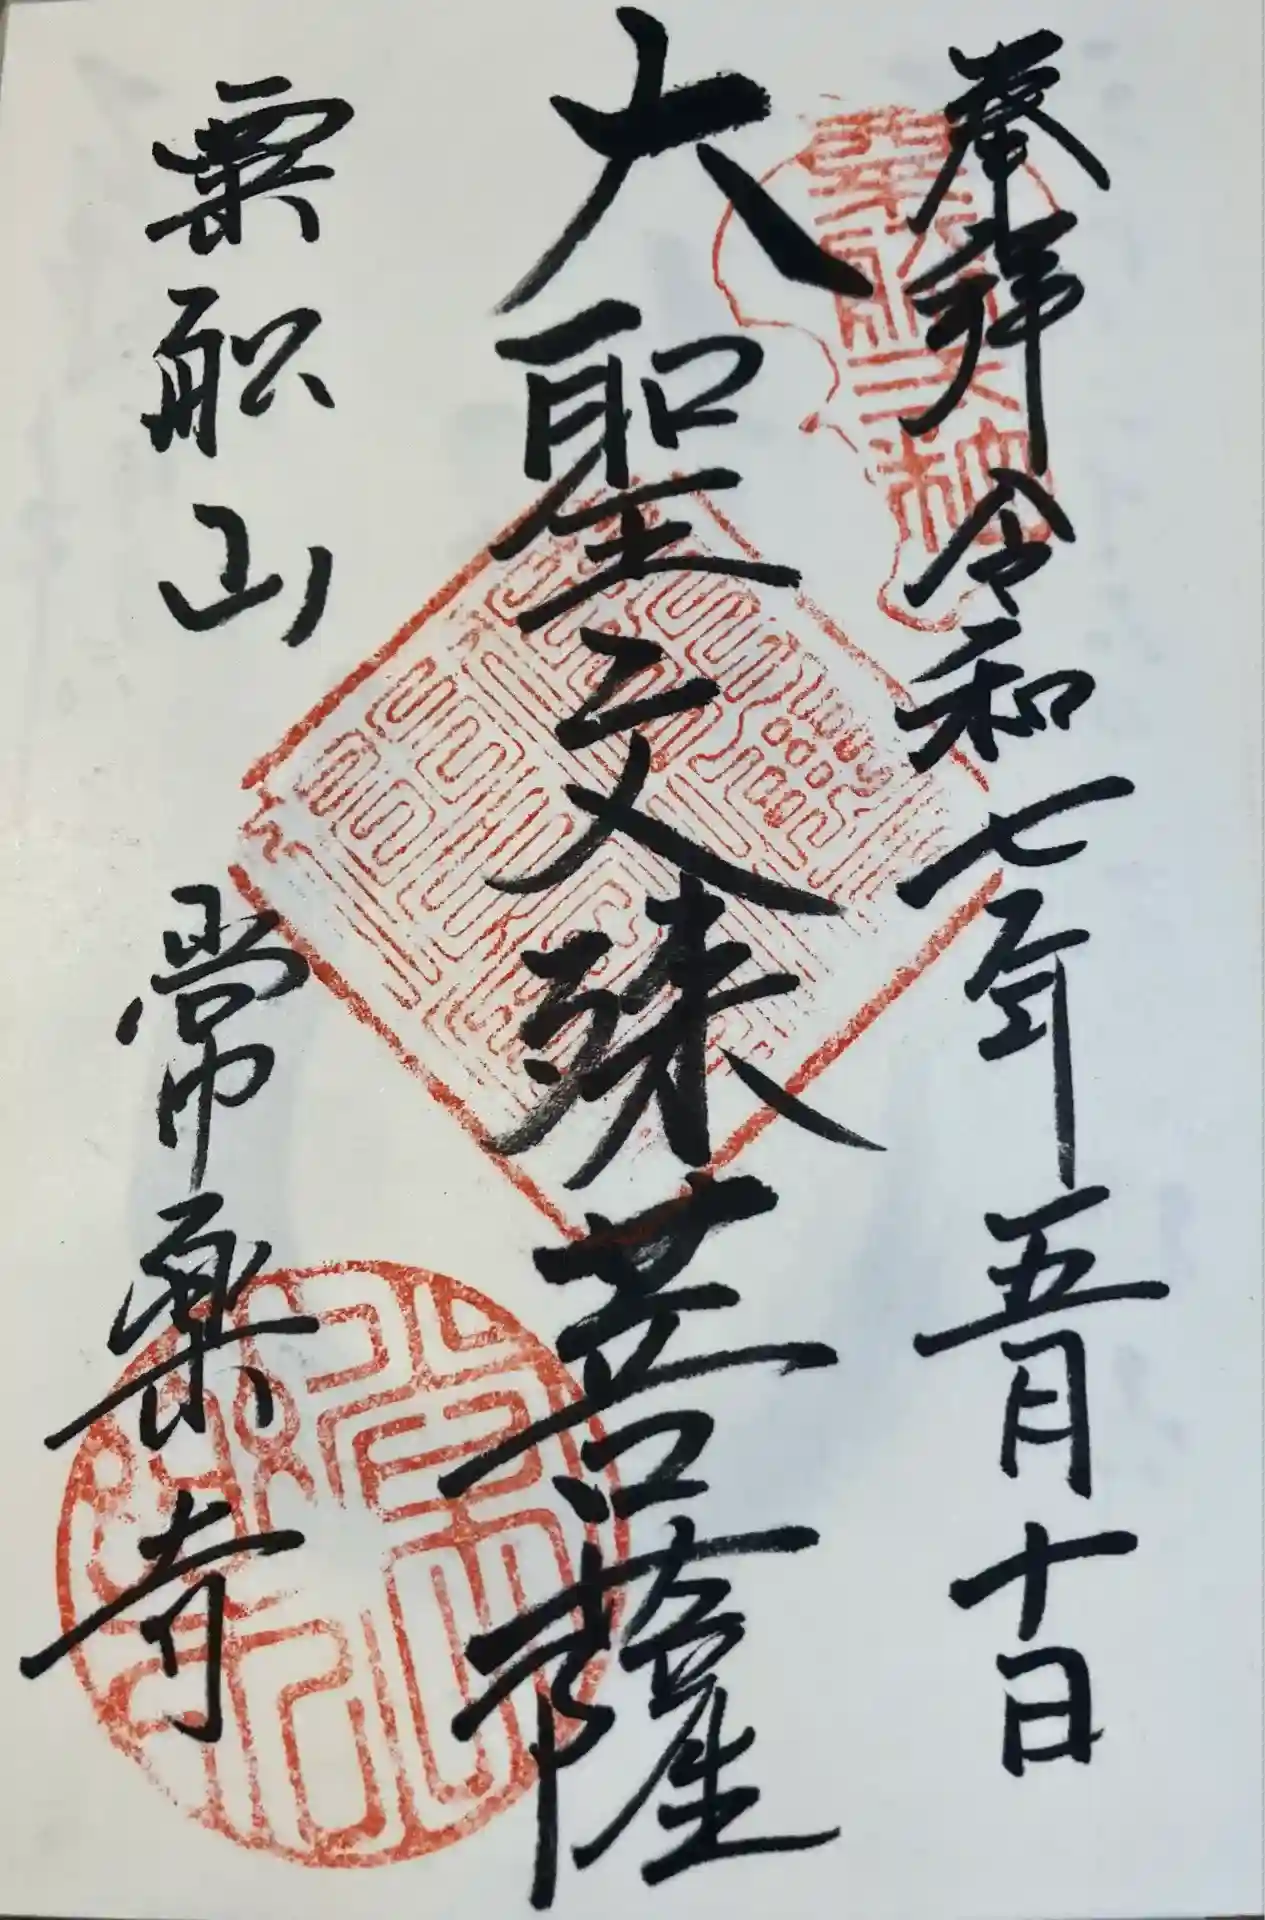 奉拝 令和七年五月十日
大聖文殊菩薩
粟船山 常楽寺